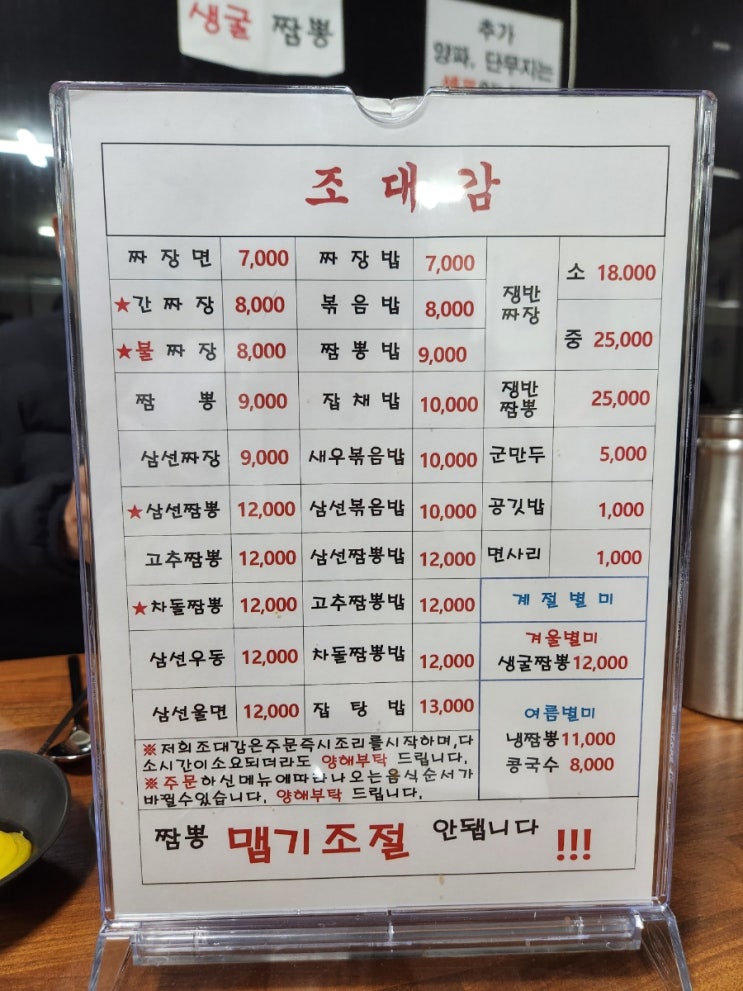 생굴 짬뽕
추가
양파, 단무지는
조대감
짜장면 7,000 짜장밥 7,000 쟁반짜장 소 18.000
★간짜장 8,000 볶음밥 8,000 중 25,000
★불짜장 8,000 짬뽕밥 9,000
짬뽕 9,000 잡채밥 10,000 쟁반짬뽕 25,000
삼선짜장 9,000 새우볶음밥 10,000 군만두 5,000
★삼선짬뽕 12,000 삼선볶음밥 10,000 공깃밥 1,000
고추짬뽕 12,000 삼선짬뽕밥 12,000 면사리 1,000
★차돌짬뽕 12,000 고추짬뽕밥 12,000 계절별미
삼선우동 12,000 차돌짬뽕밥 12,000 겨울별미
생굴짬뽕 12,000
삼선울면 12,000 잡탕밥 13,000 여름별미
냉짬뽕 11,000
콩국수 8,000
※저희조대감은주문즉시조리를시작하며,다
소시간이소요되더라도 양해부탁 드립니다.
※주문하신메뉴에따라나오는음식순서가
바뀔수있습니다. 양해부탁 드립니다.
짬뽕 맵기조절 안됩니다 !!!